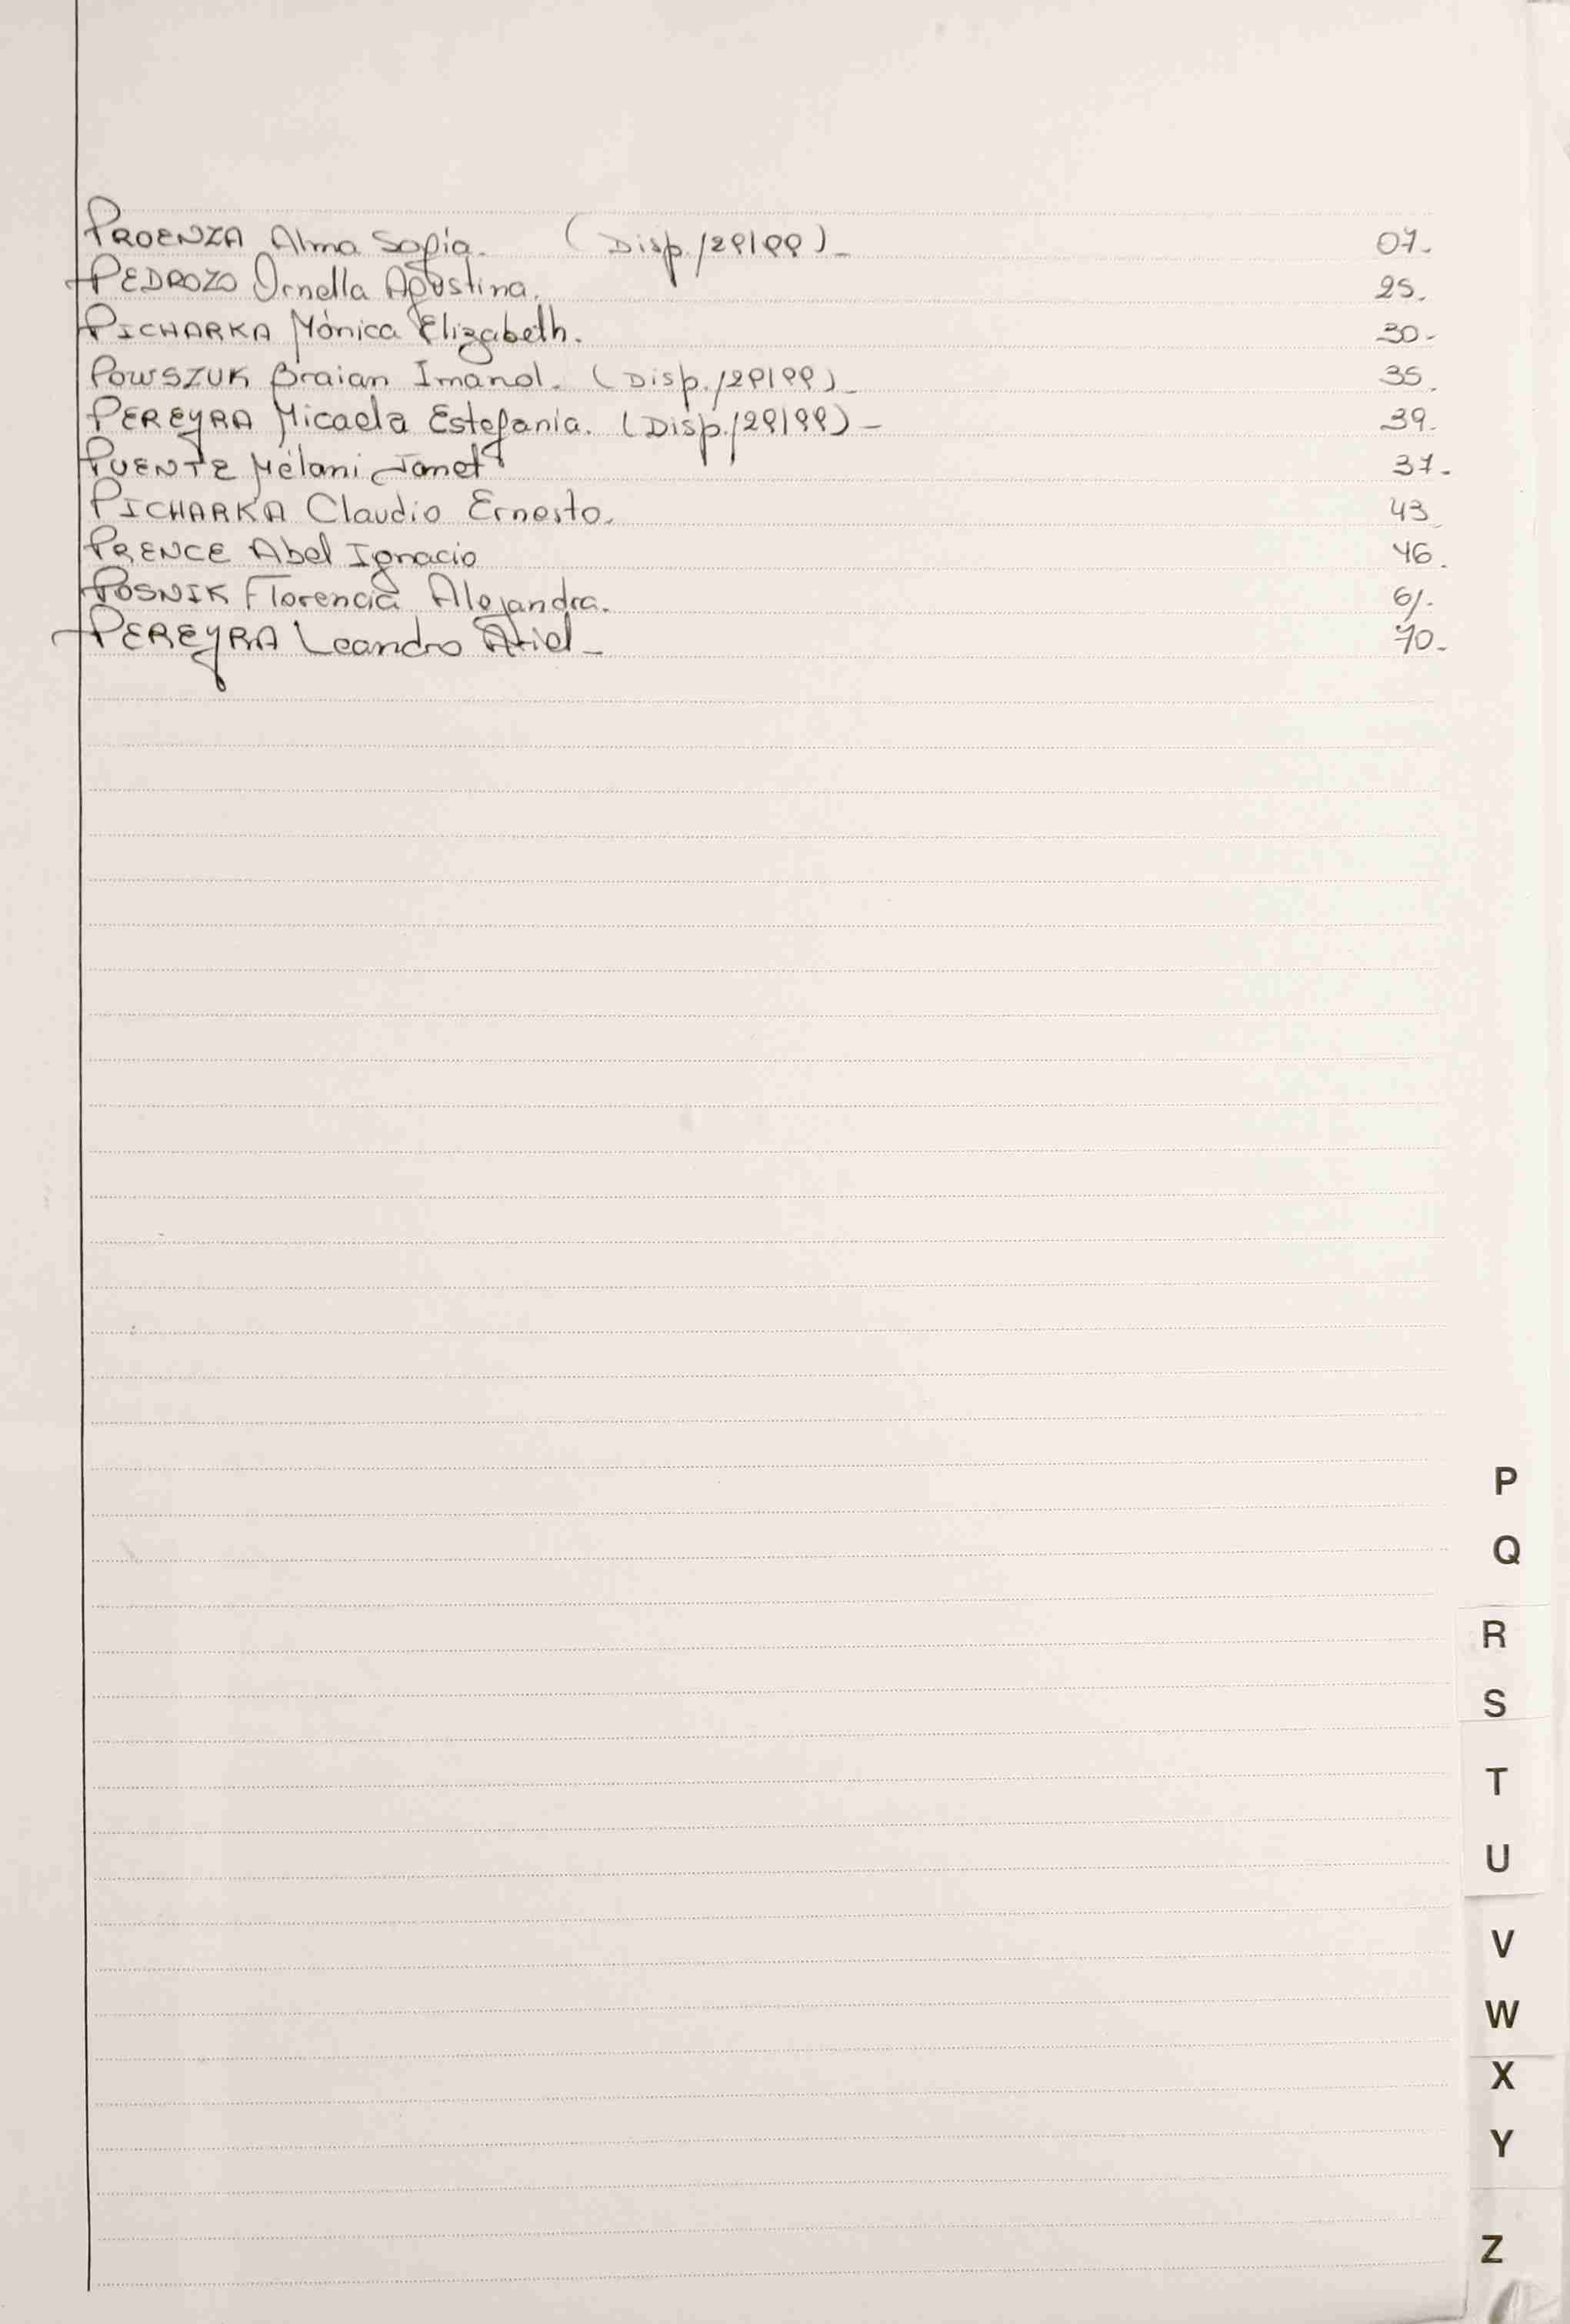 PROENZA Alma Sofía. (Disp./29/99)_ 07-
PEDROZO Ornella Agostina. 25.
PICHARKA Mónica Elizabeth. 30-
POWSZUK Braian Imanol. (Disp./29/99)_ 35.
PEREYRA Micaela Estefanía. (Disp./29/99)_ 39-
PUENTE Mélani Janet 37-
PICHARKA Claudio Ernesto. 43
PRENCE Abel Ignacio 46.
POSNIK Florencia Alejandra. 61-
PEREYRA Leandro Ariel_ 70-
P
Q
R
S
T
U
V
W
X
Y
Z